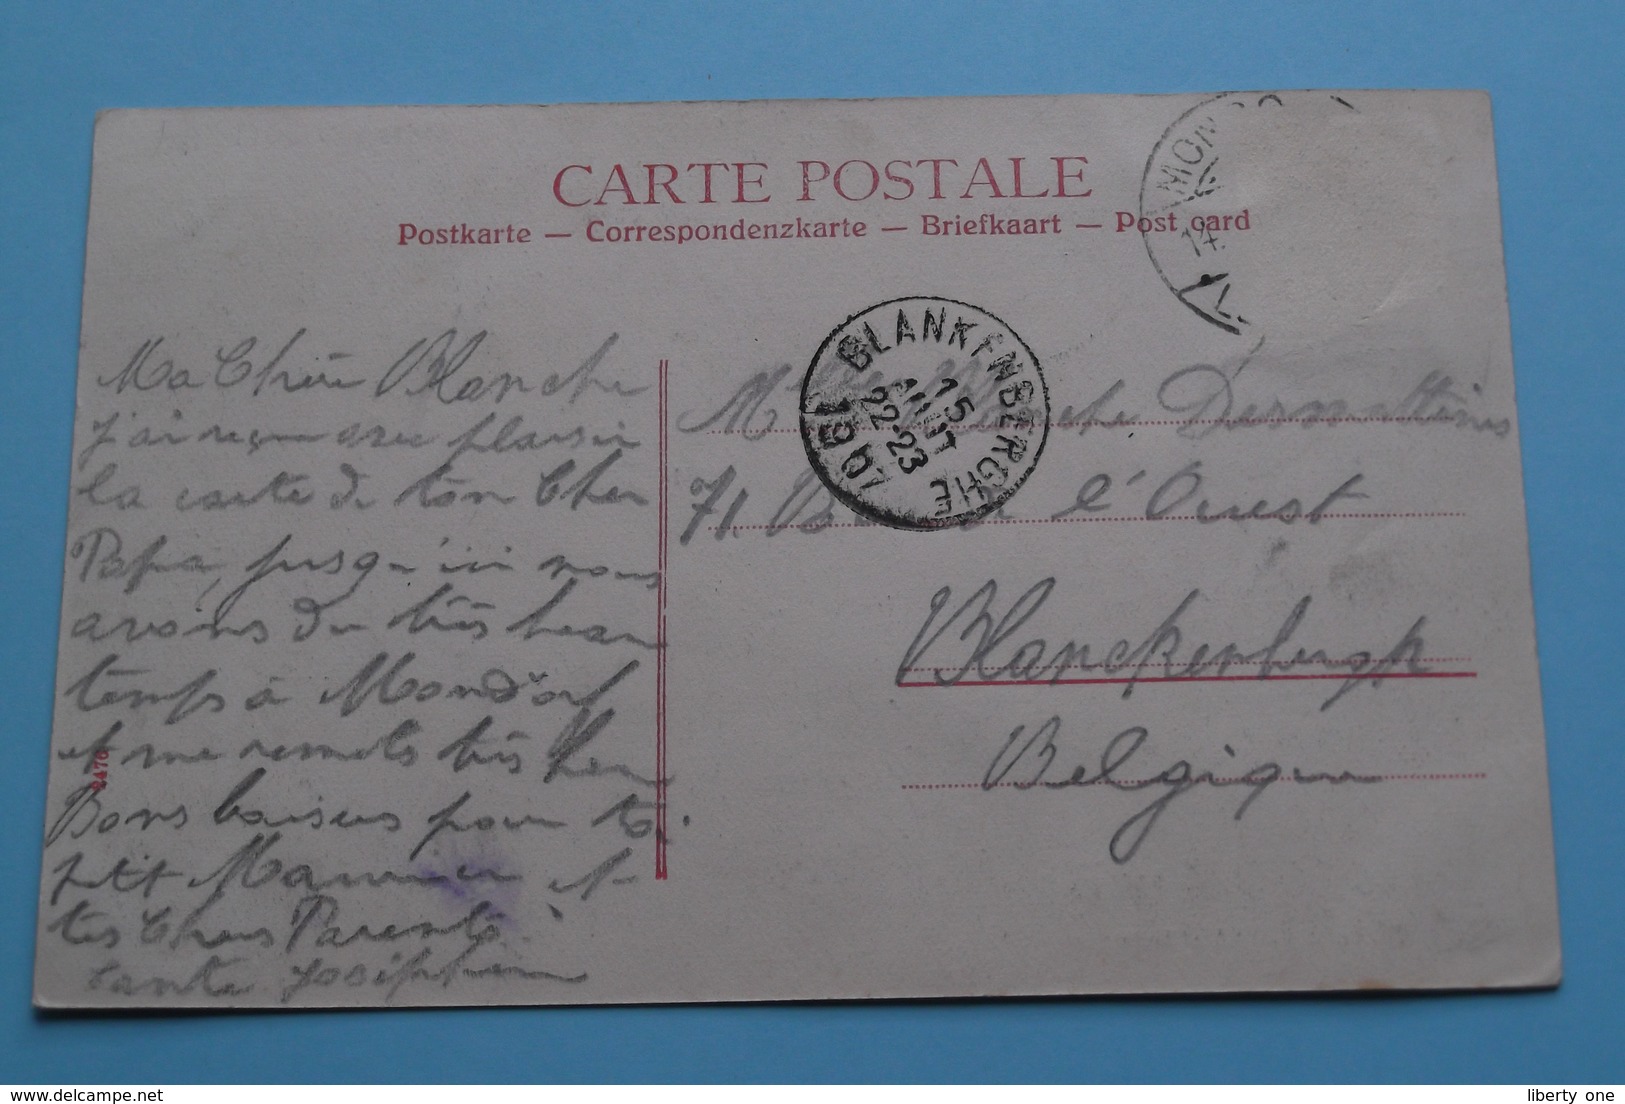 CARTE POSTALE
Postkarte — Correspondenzkarte — Briefkaart — Post card
MON
BLANKENBERGHE
15
AOUT
22-23
1907
Ma Chère Blanche
j'ai reçu avec plaisir
la carte de ton Cher
Papa, jusqu'ici nous
avons du très beau
temps à Mondorf
et me remets très bien
Bons baisers pour toi
petit Maurice et
tes Chers Parents.
tante Joséphine
2476
Mlle Blanche
71. de l'Ouest
Blanckenbergh
Belgique
liberty one